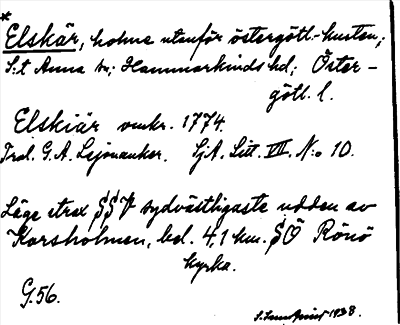 *
Elskär, holme utanför östergötl.-kusten;
S:t Anna sn; Hammarkinds hd; Öster-
götl. l.
Elskiär omkr. 1774.
Tral. G. A. Lejonanker. SjA. Litt. VIII. N:o 10.
Läge strax SSV sydvästligaste udden av
Korsholmen, bel. 4,1 km. SÖ Rönö
kyrka.
G.56.
1938.